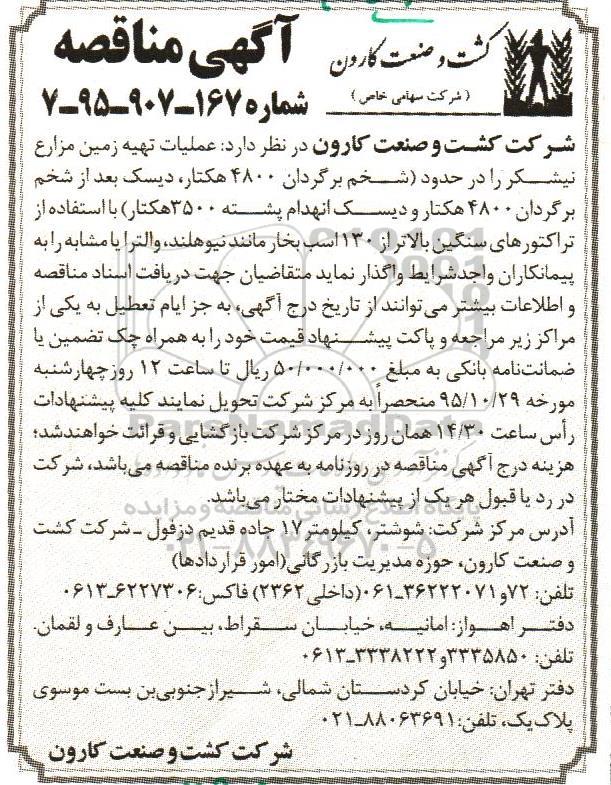 کشت و صنعت کارون
( شرکت سهامی خاص )
آگهی مناقصه
شماره ۱۶۷-۹۰۷-۹۵-۷
شرکت کشت و صنعت کارون در نظر دارد: عملیات تهیه زمین مزارع
نیشکر را در حدود (شخم برگردان ۴۸۰۰ هکتار، دیسک بعد از شخم
برگردان ۴۸۰۰ هکتار و دیسک انهدام پشته ۳۵۰۰هکتار) با استفاده از
تراکتورهای سنگین بالاتر از ۱۳۰ اسب بخار مانند نیوهلند، والترا یا مشابه را به
پیمانکاران واجد شرایط واگذار نماید متقاضیان جهت دریافت اسناد مناقصه
و اطلاعات بیشتر می‌توانند از تاریخ درج آگهی، به جز ایام تعطیل به یکی از
مراکز زیر مراجعه و پاکت پیشنهاد قیمت خود را به همراه چک تضمین یا
ضمانت‌نامه بانکی به مبلغ ۵۰/۰۰۰/۰۰۰ ریال تا ساعت ۱۲ روز چهارشنبه
مورخه ۹۵/۱۰/۲۹ منحصراً به مرکز شرکت تحویل نمایند کلیه پیشنهادات
رأس ساعت ۱۴/۳۰ همان روز در مرکز شرکت بازگشایی و قرائت خواهند شد؛
هزینه درج آگهی مناقصه در روزنامه به عهده برنده مناقصه می‌باشد، شرکت
در رد یا قبول هر یک از پیشنهادات مختار می‌باشد.
آدرس مرکز شرکت: شوشتر، کیلومتر ۱۷ جاده قدیم دزفول - شرکت کشت
و صنعت کارون، حوزه مدیریت بازرگانی(امور قراردادها)
تلفن: ۷۲و۳۶۲۲۲۰۷۱-۰۶۱(داخلی ۲۳۶۲) فاکس:۶۲۲۷۳۰۶-۰۶۱۳
دفتر اهواز: امانیه، خیابان سقراط، بین عارف و لقمان.
تلفن: ۳۳۳۵۸۵۰و۳۳۳۸۲۲۲-۰۶۱۳
دفتر تهران: خیابان کردستان شمالی، شیراز جنوبی‌بن بست موسوی
پلاک یک، تلفن:۸۸۰۶۳۶۹۱-۰۲۱
شرکت کشت و صنعت کارون
ParsNamadData
پایگاه اطلاع رسانی مناقصه و مزایده
۰۲۱-۸۸۳۴۹۶۷۰-۵